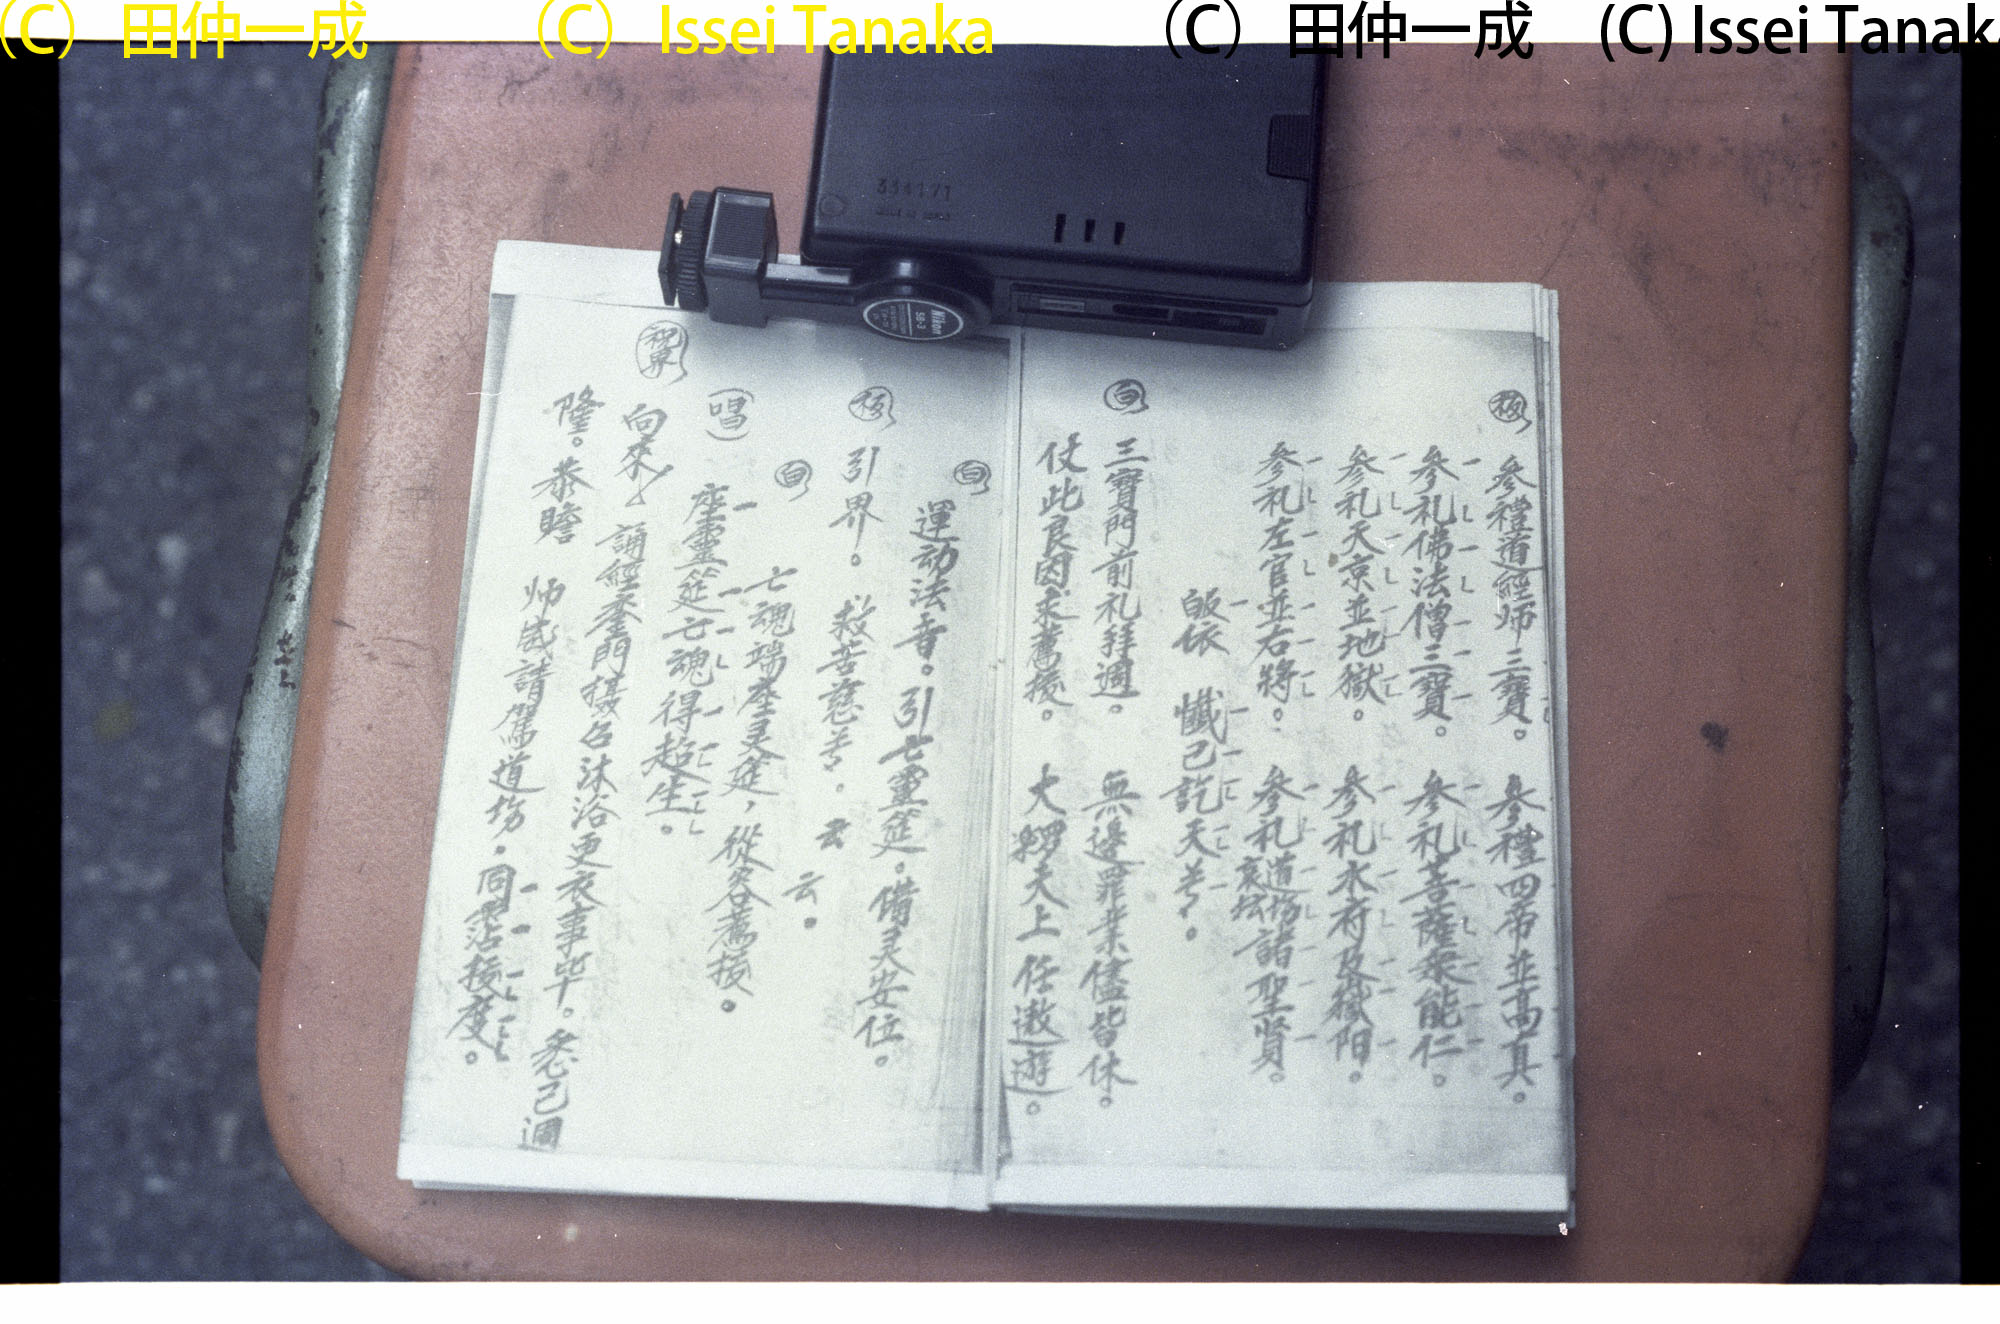 (C) 田仲一成 (C) Issei Tanaka (C) 田仲一成 (C) Issei Tanaka
334171
Nikon
SB-3
參禮道經师三寶。參禮四帝並高真。
參礼佛法僧三寶。參礼菩薩衆能仁。
參礼天京並地獄。參礼水府及嶽陽。
參礼左官並右將。參礼道场諸聖賢。
皈依 懺已訖天
白
三寶門前礼拜週。無邊罪業儘皆休。
仗此良因求薦拔。大羅天上任遨遊。
白
運动法音。引亡靈筵。備灵安位。
引界。救苦慈尊。云
白
亡魂端座灵筵,從容薦拔。云。
(唱)
座靈筵亡魂得超生。
祝界
向來 誦經 門摄召沐浴更衣事毕。悉已週
隆。恭瞻 师 請駕道场。同霑拔度。